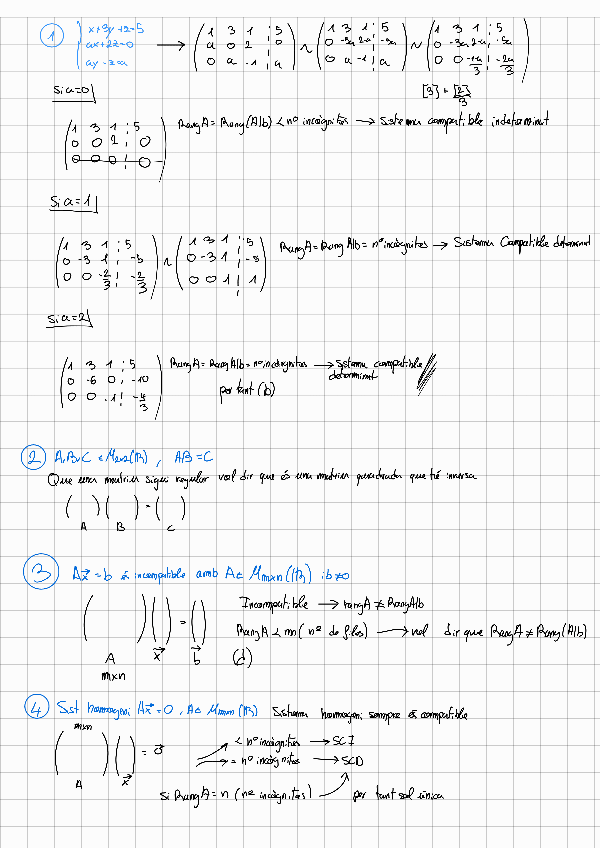 1 x+3y+z=5
ax+2z=0
ay-z=a
→ (1 3 1 ¦ 5 ; a 0 2 ¦ 0 ; 0 a -1 ¦ a) ~ (1 3 1 ¦ 5 ; 0 -3a 2-a ¦ -5a ; 0 a -1 ¦ a) ~ (1 3 1 ¦ 5 ; 0 -3a 2-a ¦ -5a ; 0 0 -1-a/3 ¦ -2a/3)
[3] + [2]/3
Si a=0
(1 3 1 ¦ 5 ; 0 0 2 ¦ 0 ; 0 0 0 ¦ 0) RangA = Rang(A|b) < nº incògnites → Sistema compatible indeterminat
Si a=1
(1 3 1 ¦ 5 ; 0 -3 1 ¦ -5 ; 0 0 -2/3 ¦ -2/3) ~ (1 3 1 ¦ 5 ; 0 -3 1 ¦ -5 ; 0 0 1 ¦ 1) RangA = Rang A|b = nº incògnites → Sistema Compatible determinat
Si a=2
(1 3 1 ¦ 5 ; 0 -6 0 ¦ -10 ; 0 0 -1 ¦ -4/3) RangA = RangA|b = nº incògnites → Sistema compatible
determinat
per tant (b)
2 A,B,C ∈ M2x2(R) , AB=C
Que una matriu sigui regular vol dir que és una matriu quadrada que té inversa
( ) ( ) = ( )
A B C
3 Ax⃗=b és incompatible amb A∈ Mmxn(R) i b≠0
( ) ( ) = ( ) Incompatible → rangA ≠ RangA|b
RangA < m (nº de files) → vol dir que RangA ≠ Rang(A|b)
A x⃗ b⃗ (d)
mxn
4 Sist homogeni Ax⃗=0 , A∈ Mmxn(R) Sistema homogeni sempre és compatible
mxn
( ) ( ) = 0⃗ < nº incògnites → SCI
= nº incògnites → SCD
A x⃗
Si RangA = n (nº incògnites) per tant sol única